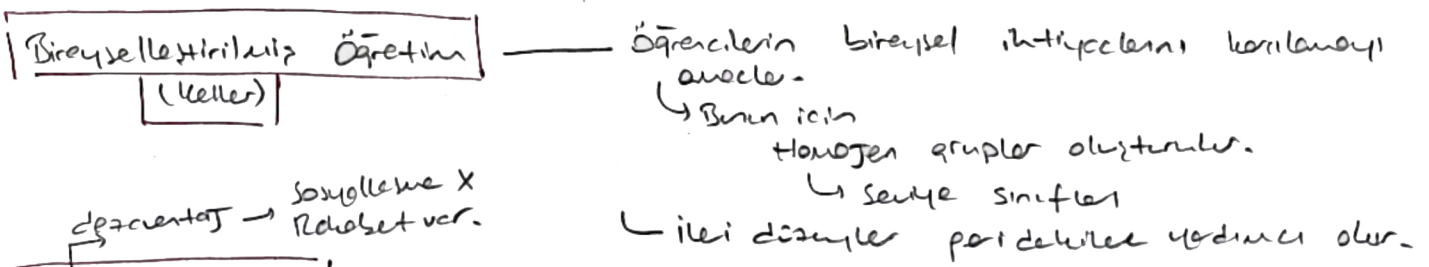 Bireyselleştirilmiş Öğretim — Öğrencilerin bireysel ihtiyaçlarını karşılamayı
amaçlar.
(Keller)
↳ Bunun için
Homojen gruplar oluşturulur.
↳ Seviye sınıfları
↳ ileri düzeyler geridekilere yardımcı olur.
dezavantaj → Sosyalleşme X
Rekabet var.